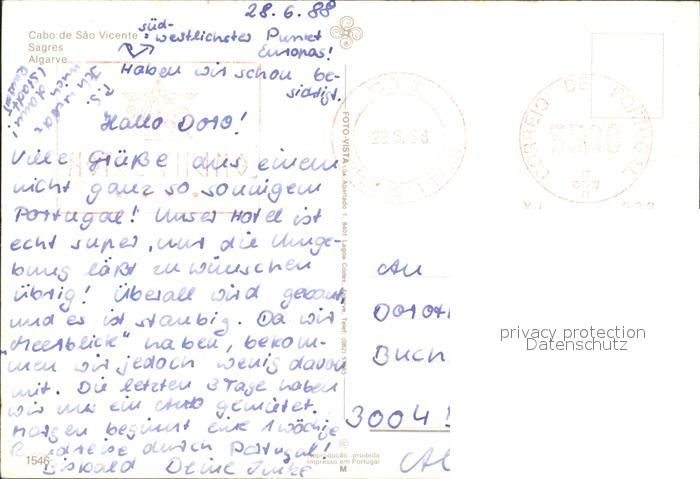 28.6.88
Cabo de São Vicente
Sagres
Algarve
süd-
westlichster Punkt
Europas!
Haben wir schon be-
sichtigt.
P.S.
Ich
Hallo Doro!
Viele Grüße aus einem
nicht ganz so sonnigem
Portugal! Unser Hotel ist
echt super, nur die Umge-
bung läßt zu wünschen
übrig! Überall wird gebaut
und es ist staubig. Da wir
"Meerblick" haben, bekom-
men wir jedoch wenig davon
mit. Die letzten 3 Tage haben
wir uns ein Auto gemietet.
Morgen beginnt eine 1 wöchige
Rundreise durch Portugal!
Bis bald Deine Imke
1546
FOTO-VISTA
Reprodução proibida
Impresso em Portugal
M
28.6.88
CORREIO DE PORTUGAL
An
Buch
3004
privacy protection
Datenschutz